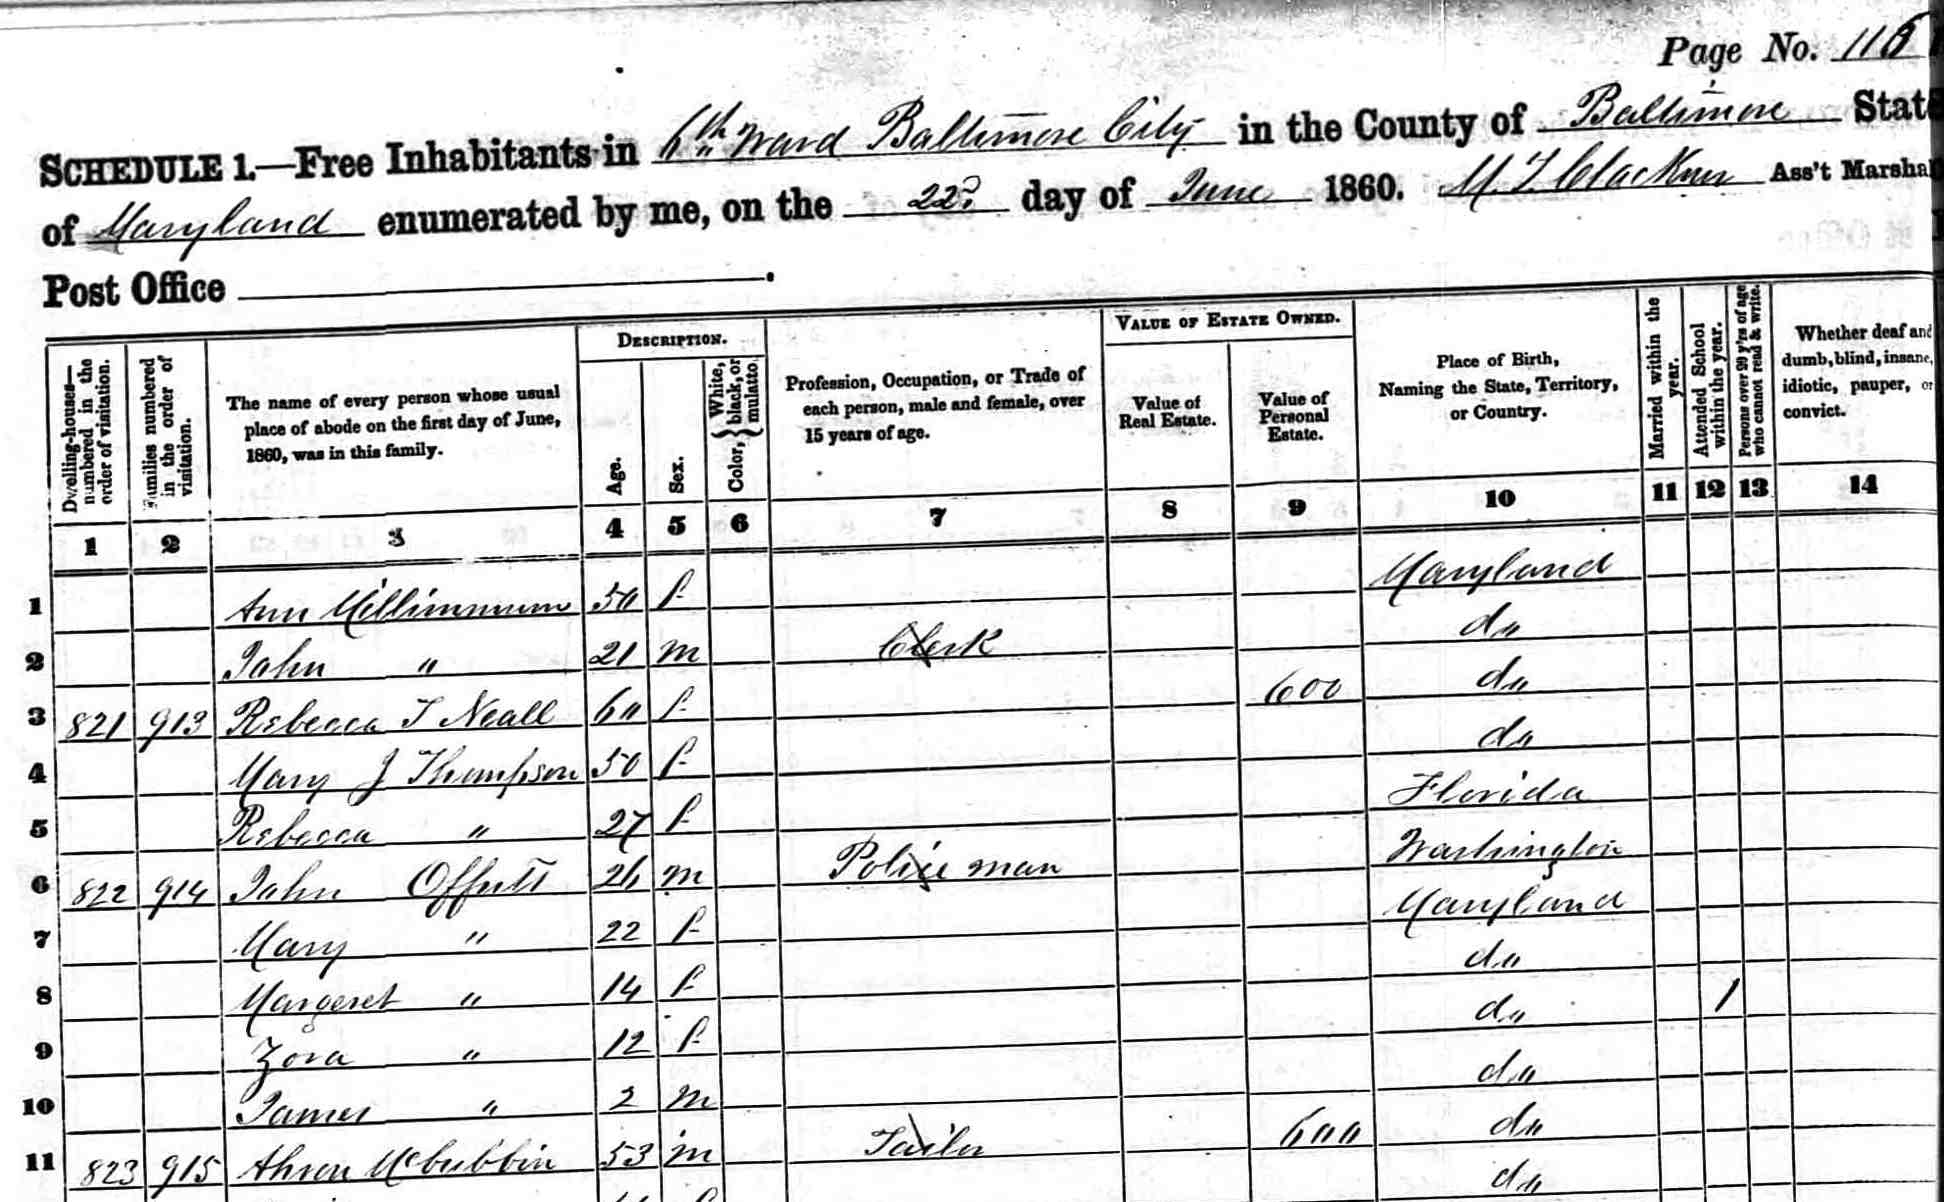 Page No. 116
SCHEDULE 1.—Free Inhabitants in 6th Ward Baltimore City in the County of Baltimore State
of Maryland enumerated by me, on the 22d day of June 1860. Ass't Marshal
Post Office
Dwelling-houses—numbered in the order of visitation.
Families numbered in the order of visitation.
The name of every person whose usual place of abode on the first day of June, 1860, was in this family.
DESCRIPTION.
Age.
Sex.
Color, { White, black, or mulatto. }
Profession, Occupation, or Trade of each person, male and female, over 15 years of age.
VALUE OF ESTATE OWNED.
Value of Real Estate.
Value of Personal Estate.
Place of Birth, Naming the State, Territory, or Country.
Married within the year.
Attended School within the year.
Persons over 20 y'rs of age who cannot read & write.
Whether deaf and dumb, blind, insane, idiotic, pauper, or convict.
1 2 3 4 5 6 7 8 9 10 11 12 13 14
1 Ann 50 f Maryland
2 John " 21 m Clerk do
3 821 913 Rebecca T Neall 60 f 600 do
4 Mary J Thompson 50 f do
5 Rebecca " 27 f Florida
6 822 914 John Offutt 26 m Police man Washington
7 Mary " 22 f Maryland
8 Margeret " 14 f do
9 Zora " 12 f do 1
10 James " 2 m do
11 823 915 Ahron McCubbin 53 m Tailor 600 do
do